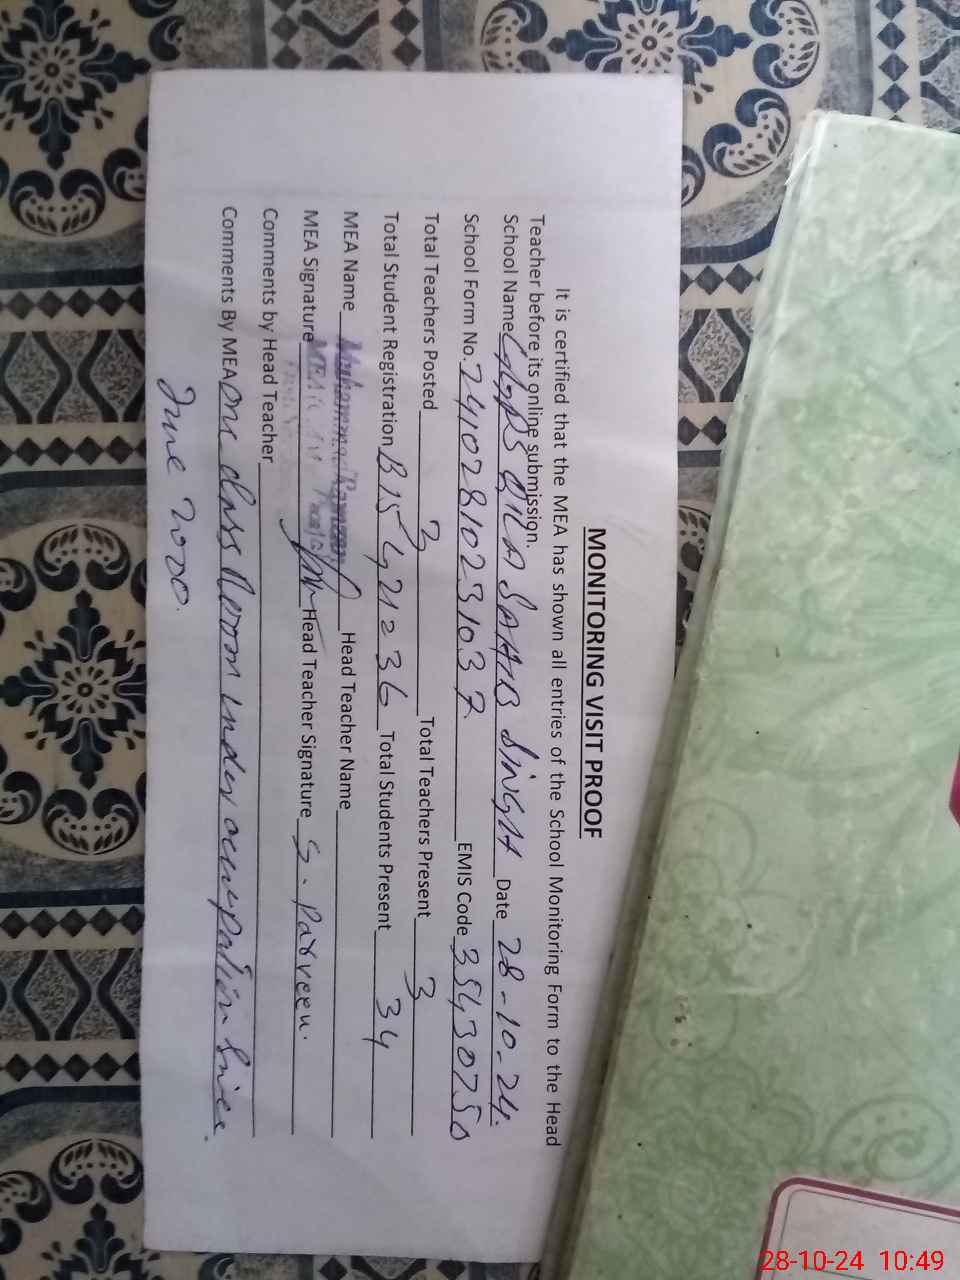 MONITORING VISIT PROOF
It is certified that the MEA has shown all entries of the School Monitoring Form to the Head
Teacher before its online submission.
School Name GGPS QILA SAHIB SINGH Date 28-10-24.
School Form No. 24102810231037 EMIS Code 35430750
Total Teachers Posted 3 Total Teachers Present 3
Total Student Registration B 15 G 21 = 36 Total Students Present 34
MEA Name Muhammad Ramzan Head Teacher Name
MEA Signature Head Teacher Signature S. Parveen.
Comments by Head Teacher
Comments By MEA One class Room under occupation Since
June 2020.
28-10-24 10:49